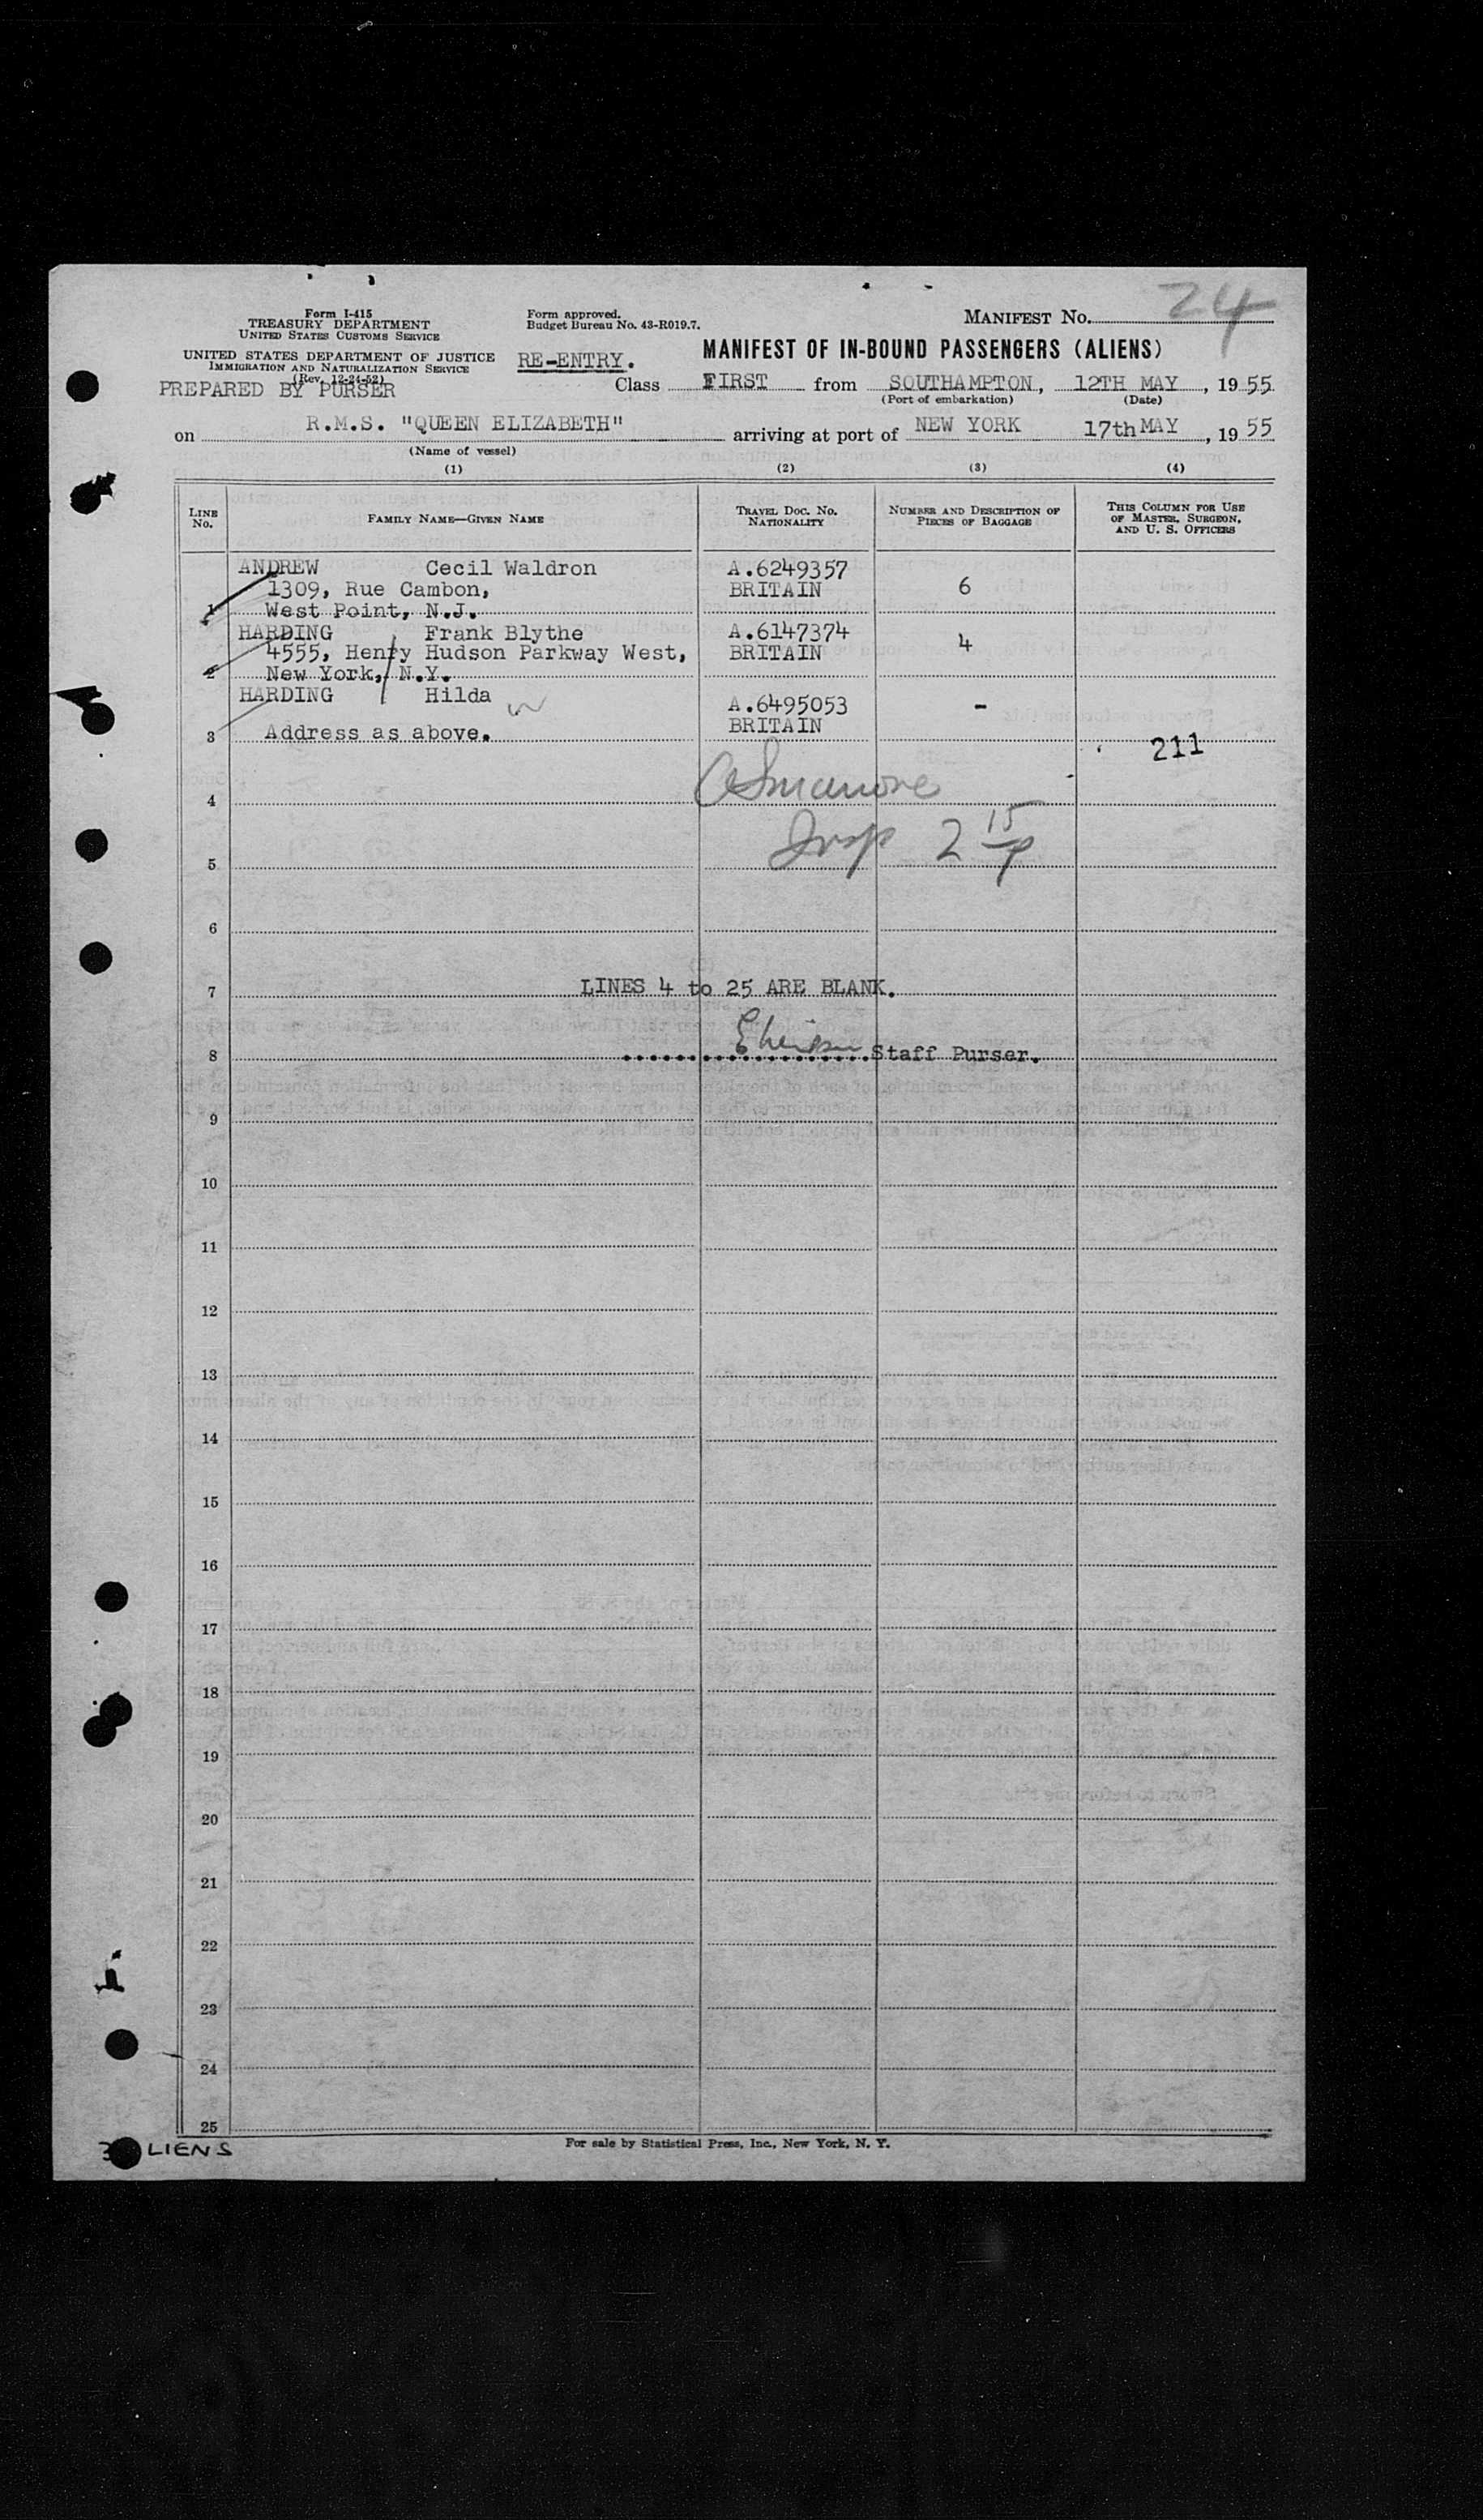 24
Form I-415
TREASURY DEPARTMENT
UNITED STATES CUSTOMS SERVICE
UNITED STATES DEPARTMENT OF JUSTICE
IMMIGRATION AND NATURALIZATION SERVICE
(Rev. 12-24-52)
PREPARED BY PURSER
Form approved.
Budget Bureau No. 43-R019.7.
RE-ENTRY.
MANIFEST NO.
MANIFEST OF IN-BOUND PASSENGERS (ALIENS)
Class FIRST from SOUTHAMPTON, 12TH MAY, 1955
(Port of embarkation) (Date)
on R.M.S. "QUEEN ELIZABETH" arriving at port of NEW YORK 17th MAY, 1955
(Name of vessel)
(1) (2) (3) (4)
LINE NO. FAMILY NAME—GIVEN NAME TRAVEL DOC. NO. NATIONALITY NUMBER AND DESCRIPTION OF PIECES OF BAGGAGE THIS COLUMN FOR USE OF MASTER, SURGEON, AND U. S. OFFICERS
ANDREW Cecil Waldron A.6249357
1309, Rue Cambon, BRITAIN 6
1 West Point, N.J.
HARDING Frank Blythe A.6147374
4555, Henry Hudson Parkway West, BRITAIN 4
2 New York, N.Y.
HARDING Hilda A.6495053 -
3 Address as above. BRITAIN
211
4
5 Insp 2 15 p
6
7 LINES 4 to 25 ARE BLANK.
8 Staff Purser.
9
10
11
12
13
14
15
16
17
18
19
20
21
22
23
24
25
3 LIENS
For sale by Statistical Press, Inc., New York, N. Y.